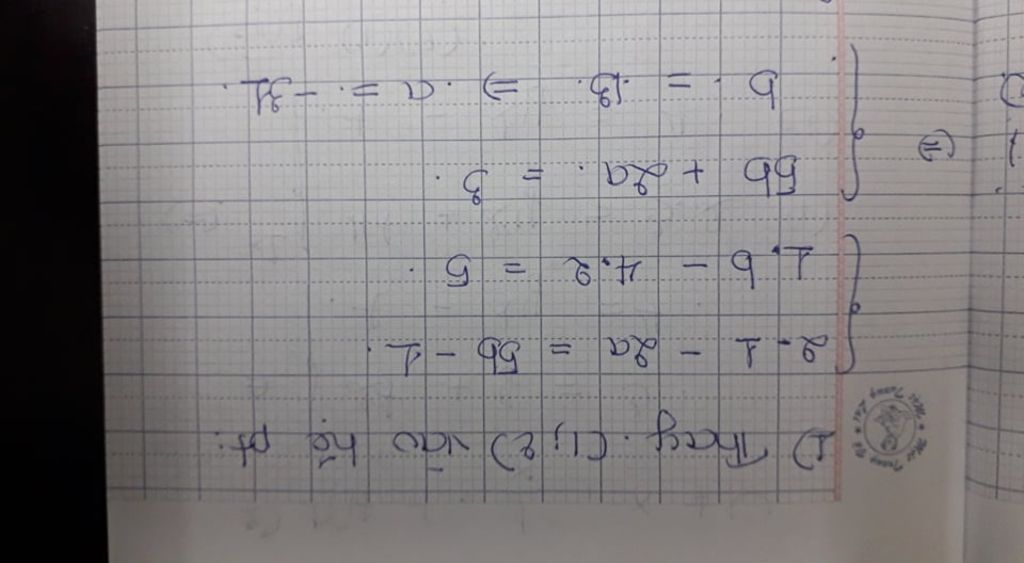 1) Thay (1; 2) vào hệ pt:
2.1 - 2a = 5b - 1.
1.b - 4.2 = 5.
(=) 5b + 2a = 3.
b = 13. => a = -31.